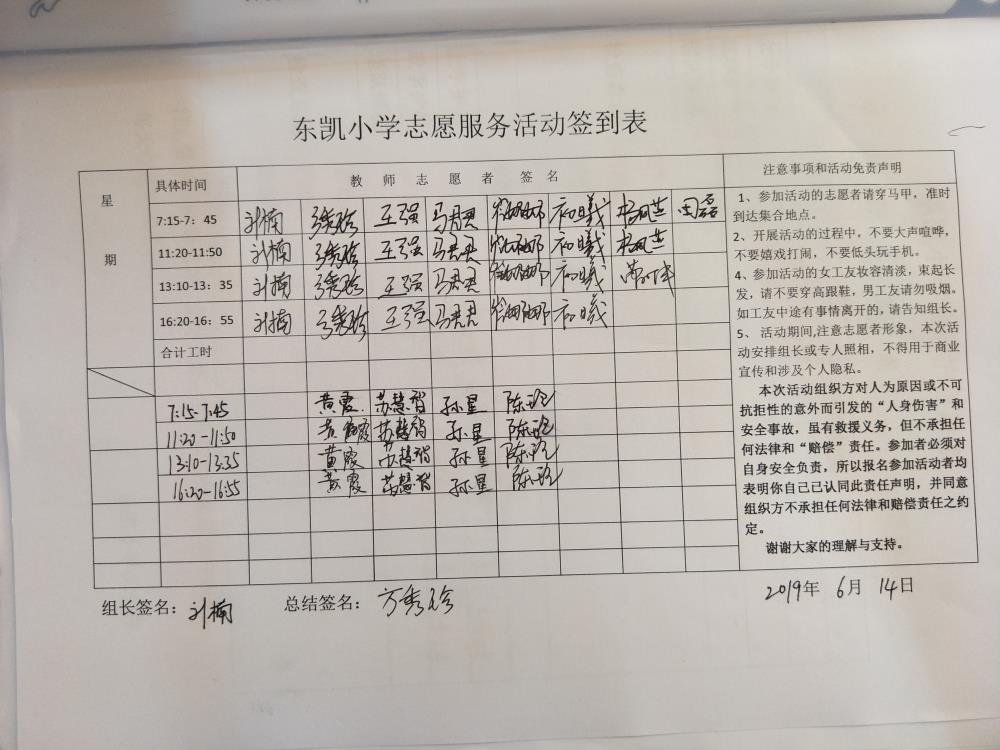 东凯小学志愿服务活动签到表
星期 具体时间 教师志愿者签名 注意事项和活动免责声明
7:15-7：45 刘楠 王强 马君君 杨凤芝 周磊
11:20-11:50 刘楠 王强 马君君 杨凤芝
13:10-13：35 刘楠 王强 马君君
16:20-16：55 刘楠 王强 马君君
合计工时
7:15-7:45 黄霞 苏慧智 孙星 陈玲
11:20-11:50 黄霞 苏慧智 孙星 陈玲
13:10-13:35 黄霞 苏慧智 孙星 陈玲
16:20-16:55 黄霞 苏慧智 孙星 陈玲
1、参加活动的志愿者请穿马甲，准时
到达集合地点。
2、开展活动的过程中，不要大声喧哗，
不要嬉戏打闹，不要低头玩手机。
4、参加活动的女工友妆容清淡，束起长
发，请不要穿高跟鞋，男工友请勿吸烟。
如工友中途有事情离开的，请告知组长。
5、活动期间,注意志愿者形象，本次活
动安排组长或专人照相，不得用于商业
宣传和涉及个人隐私。
本次活动组织方对人为原因或不可
抗拒性的意外而引发的“人身伤害”和
安全事故，虽有救援义务，但不承担任
何法律和“赔偿”责任。参加者必须对
自身安全负责，所以报名参加活动者均
表明你自己已认同此责任声明，并同意
组织方不承担任何法律和赔偿责任之约
定。
谢谢大家的理解与支持。
组长签名：刘楠 总结签名：方秀珍 2019年 6月 14日